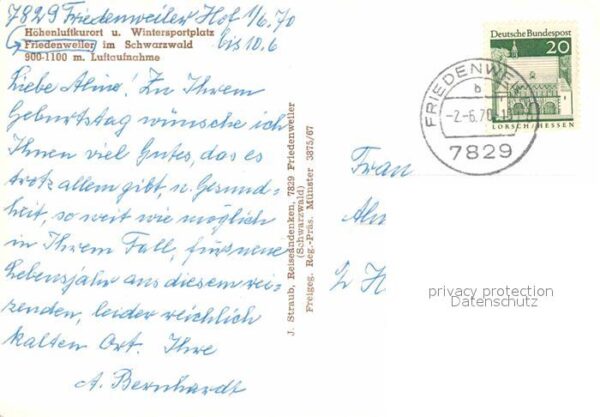 7829 Friedenweiler Hof 1/6.70
bis 10.6
Höhenluftkurort u. Wintersportplatz
Friedenweiler im Schwarzwald
900-1100 m. Luftaufnahme
Liebe Aline! Zu Ihrem
Geburtstag wünsche ich
Ihnen viel Gutes, das es
trotz allem gibt, u. Gesund-
heit, so weit wie möglich
in Ihrem Fall, fürs neue
Lebensjahr aus diesem rei-
zenden, leider reichlich
kalten Ort. Ihre
A. Bernhardt
J. Straub, Reiseandenken, 7829 Friedenweiler
(Schwarzwald)
Freigeg. Reg.-Präs. Münster 3875/67
Deutsche Bundespost
20
LORSCH/HESSEN
FRIEDENWE
b
-2.-6.70
7829
Frau
privacy protection
Datenschutz